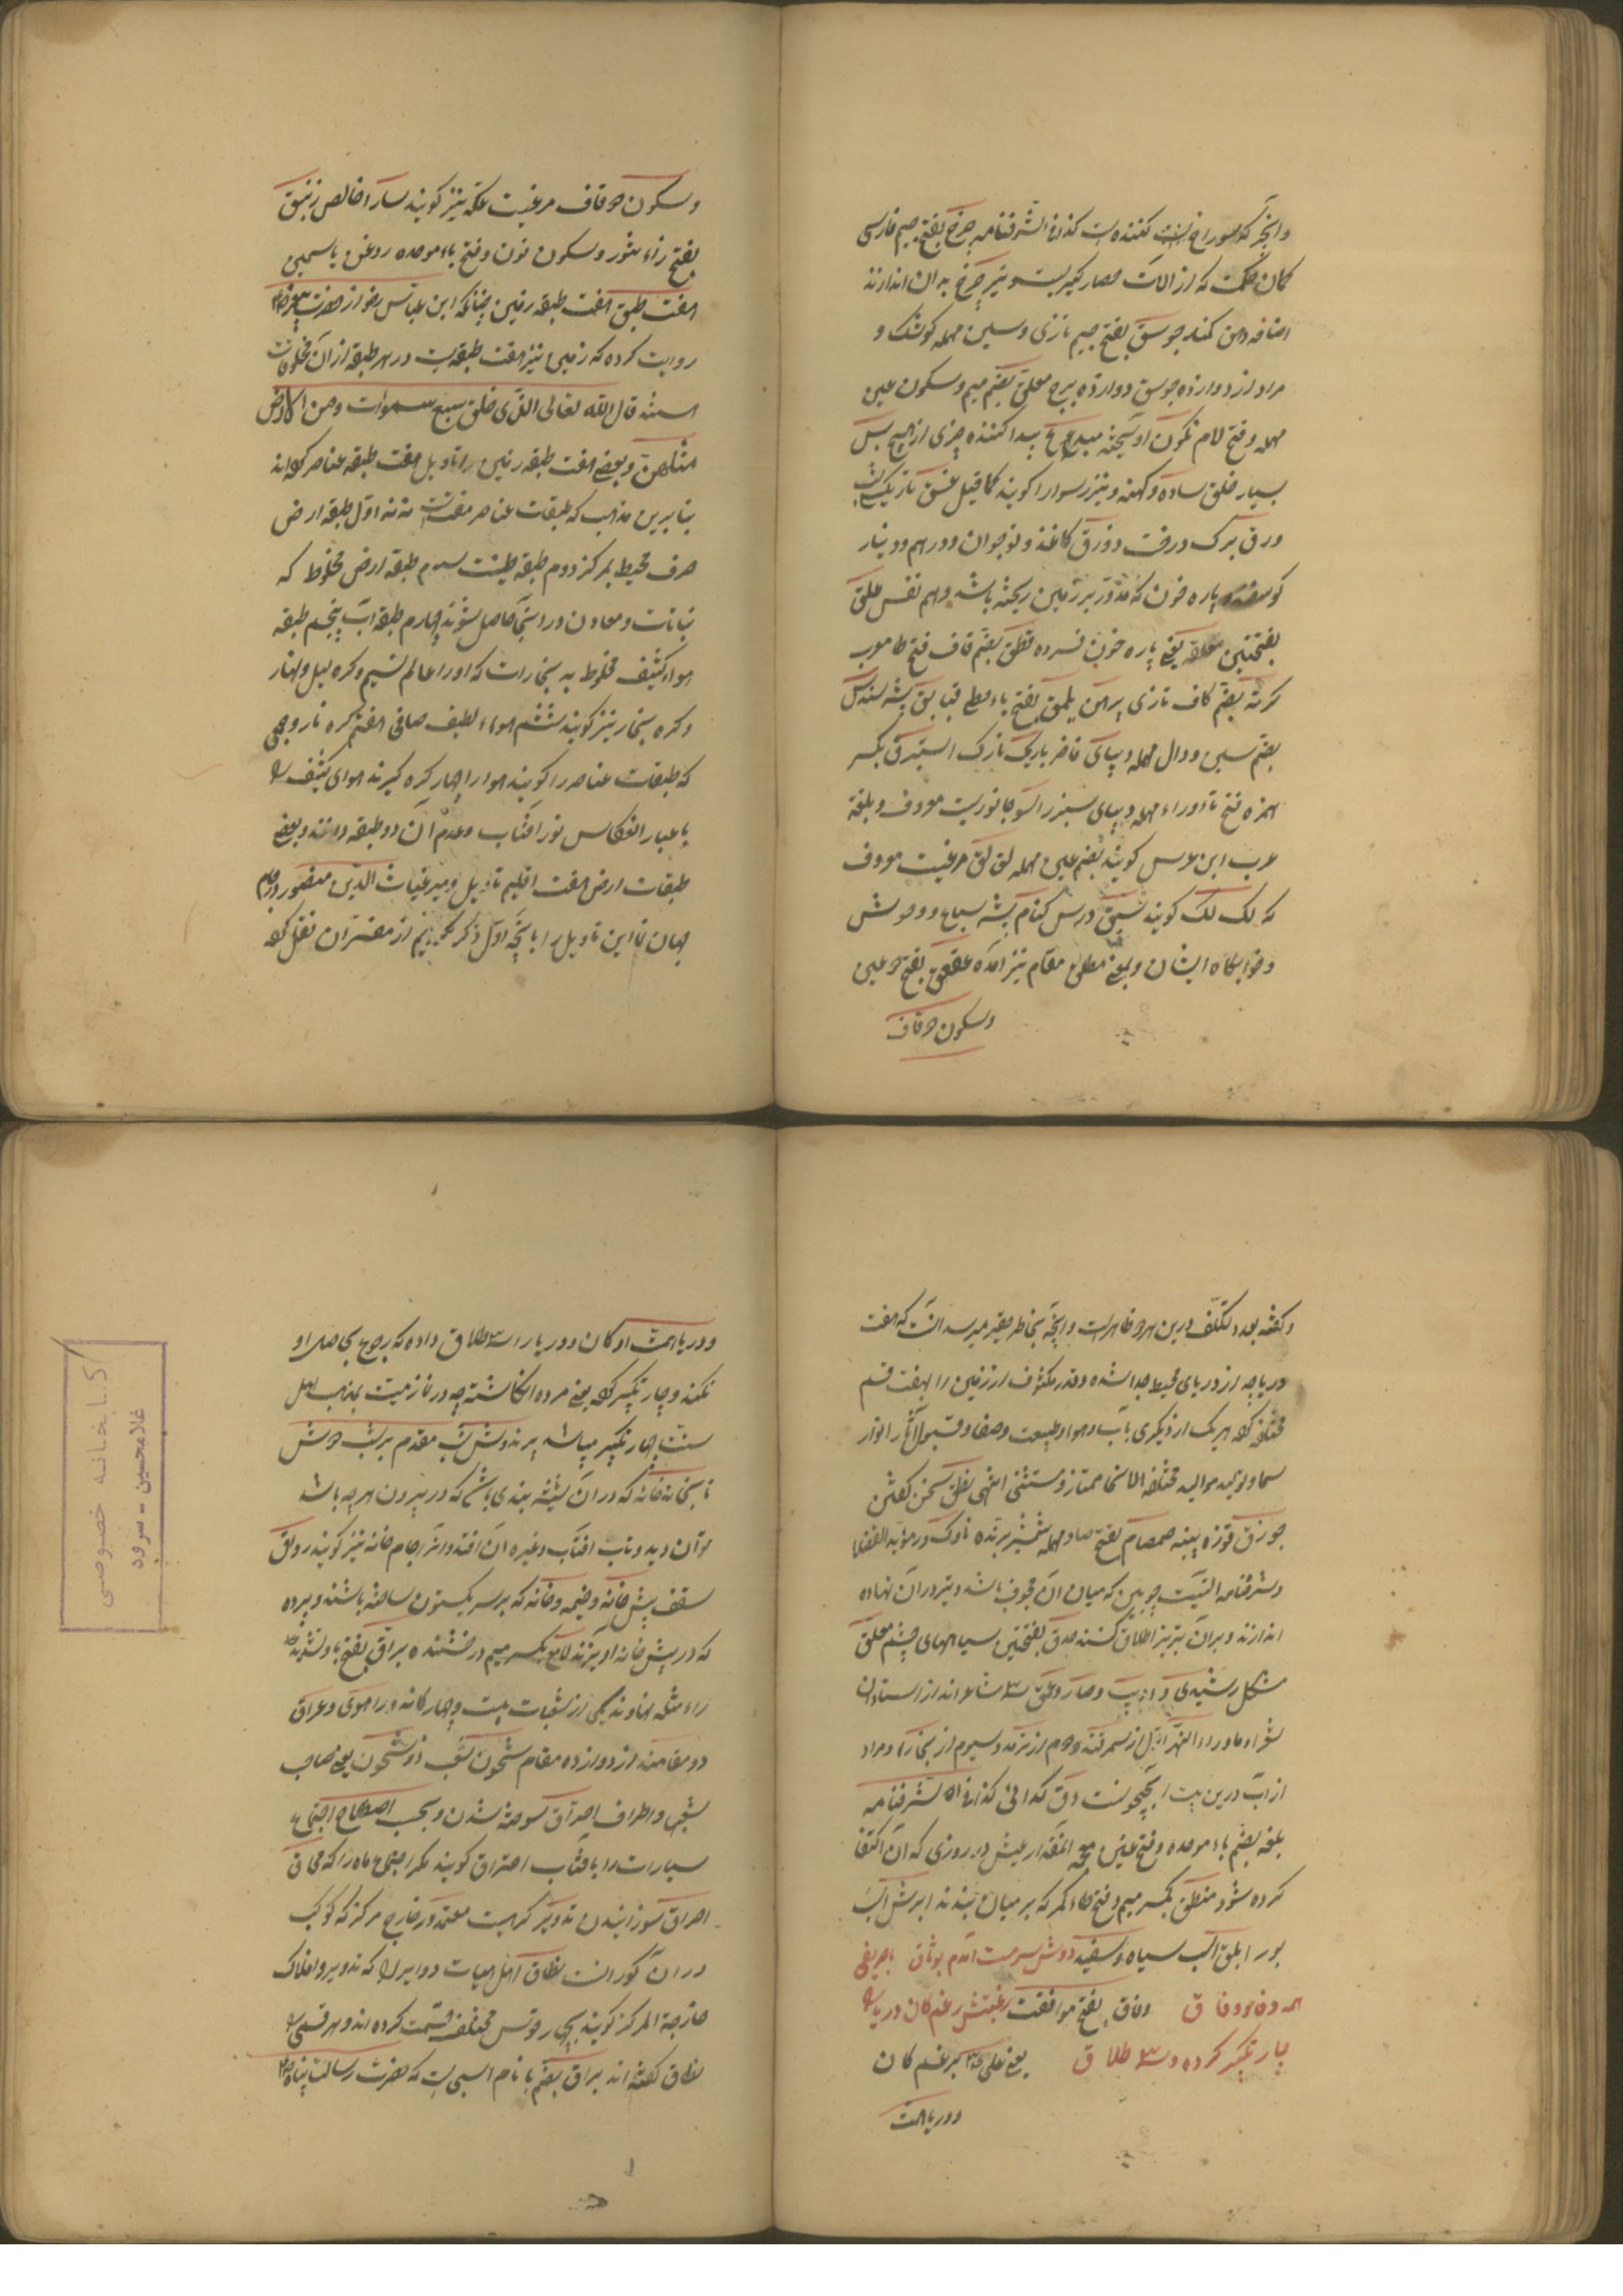 وآنچه که سوراخ کننده است کذا فی الشرفنامه چرخ بفتح جیم فارسی
کمان حکمت که از آلات حصار گیریست و نیز چرخ به آن اندازند
اضافه دهن کمند جوسق بفتح جیم تازی و سین مهمله کوشک و
مراد از دوازده جوسق دوازده برج معلق بضم میم و سکون عین
مهمله و فتح لام نگون آویخته مبدع پیدا کننده چیزی از هیچ بس
بسیار خلق ساده و کهنه و نیز رسوا را گویند کما قیل عشق تاریک
ورق برگ درخت و ورق کاغذ و نوجوان و درهم و دینار
گوسفند پاره خون که مدور بر زمین ریخته باشد و هم نفس علق
بفتحتین علقه یعنی پاره خون فسرده قطق بضم قاف فتح طا معرب
کرته بضم کاف تازی پیراهن یلمق بفتح یاء حطی قبا بق پشه سندس
بضم سین و دال مهمله دیبای فاخر باریک نازک استبرق بکسر
همزه فتح تا و راء مهمله دیبای سبز راسو جانوریست معروف و بلغة
عرب ابن عرس گویند بضم عین مهمله لق لق مرغیست معروف
که لک لک گویند نسق درس کنام بیشه سباع و وحوش
و خوابگاه ایشان و بمعنی مطلق مقام نیز آمده عقعق بفتح دو عین
و سکون دو قاف
و سکون دو قاف مرغیست عکه نیز گویند سارا خالص زنبق
بفتح زاء منثور و سکون نون و فتح باء موحده روغن یاسمین
هفت طبق هفت طبقه زمین چنانکه ابن عباس رض از حضرت پیغمبر
روایت کرده که زمین نیز هفت طبقه است در هر طبقه از آن مخلوقات
هستند قال الله تعالی الذی خلق سبع سموات ومن الارض
مثلهن و بعضی هفت طبقه زمین را تاویل هفت طبقه عناصر کرده اند
بنا برین مذهب که طبقات عناصر هفت است نه نه اول طبقه ارض
صرف محیط بمرکز دوم طبقه طینت سوم طبقه ارض مخلوط که
نباتات و معادن در اینجا حاصل شوند چهارم طبقه آب پنجم طبقه
هواء کثیف مخلوط به بخارات که او را عالم نسیم و کره لیل و نهار
و کره بخار نیز گویند ششم هواء لطیف صافی هفتم کره نار و جمعی
که طبقات عناصر را گویند هوا را چهار کره گیرند هوای کثیف را
باعتبار انعکاس نور آفتاب و عدم آن دو طبقه دانند و بعضی
طبقات ارض هفت اقلیم تاویل و میر غیاث الدین منصور در جام
جهان نما این تاویل را بآنچه اول ذکر کردیم از مفسران نقل کرده
و گفته بعد و تکلف درین هر دو ظاهر است و آنچه بخاطر فقیر میرسد آنست که هفت
دریاچه از دریای محیط جدا شده و قدر مکشوف از زمین را بهفت قسم
مختلف کرده هر یک از دیگری بآب و هوا و طبیعت و صفا و قبول آثار انوار
سما و تولید موالید مختلف الانحا ممتاز و مستثنی انتهی نطق سخن گفتن
جوزق غوزه پنبه صمصام بفتح صاد مهمله شمشیر برنده ناوک در مؤید الفضلا
و شرفنامه آلتیست چوبین که میان آن مجوف باشد و تیر در آن نهاده
اندازند و بر آن تیر نیز اطلاق کنند حدق بفتحتین سیاهیهای چشم مغلق
مشکل رشیدی و ادیب و صابر و عمعق سه شاعر اند از استادان
شعراء ماوراء النهر اول از سمرقند و دوم از ترمذ و سیوم از بخارا و مراد
از آب درین بیت آب جیحونست دق گدائی کذا فی الشرفنامه
بلغه بضم باء موحده و فتح غین معجمه آنمقدار عیش در روزی که به آن اکتفا
کرده شود منطق بکسر میم و فتح طاء کمر که بر میان بندند ابرش اسب
بور ابلق اسب سیاه و سفید دوش سرمست آمدم بوثاق با حریفی
همه وفا و وفاق وفاق بفتح موافقت رغبتش رغم کان دریا را
چار تکبیر کرده و سه طلاق یعنی علی خان کبر رغم کان
و دریا همت
و دریا همت او کان و دریا را سه طلاق داده که رجوع بحاصل او
نکند و چار تکبیر کرده یعنی مرده انگاشته چه در نماز میت بمذهب اهل
سنت چهار تکبیر میباشد پرندوش شب مقدم بر شب دوش
تابخانه خانه که در آن شیشه بندی باشد که در بیرون هر چه باشد
تو آن دید و تاب آفتاب و غیره آن افتد و آنرا جام خانه نیز گویند رواق
سقف پیش خانه و خیمه و خانه که بر سر یکستون ساخته باشند و پرده
که در پیش خانه آویزند لامع بکسر میم درخشنده براق بفتح با و تشدید
راء مثله نهاوند یکی از شعبات بیست و چهار گانه و راهوی و عراق
دو مقامند از دوازده مقام شجون شعب ذو شجون یعنی صاحب
شعب و اطراف احتراق سوخته شدن و بحسب اصطلاح اجتماع
سیارات را با آفتاب احتراق گویند مگر اجتماع ماه را که محاق
احراق سوزانیدن تدویر کرهیست معتمد در خارج مرکز که کوکب
در آن مرکوز است نطاق اهل هیات دوایری را که تدویر و افلاک
خارجة المرکز گویند بچهار قوس مختلف قسمت کرده اند و هر قسمی را
نطاق گفته اند براق بضم با نام اسبی است که حضرت رسالت پناه
کتابخانه خصوصی
غلامحسین - سرود